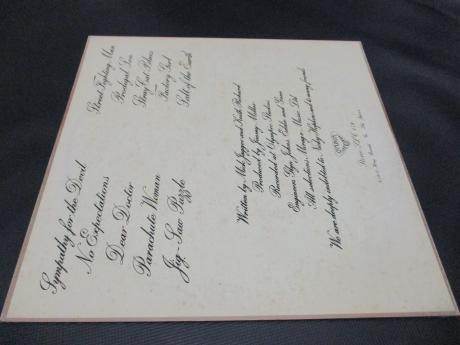 Sympathy for the Devil
No Expectations
Dear Doctor
Parachute Woman
Jig-Saw Puzzle
Street Fighting Man
Prodigal Son
Stray Cat Blues
Factory Girl
Salt of the Earth
Written by Mick Jagger and Keith Richard
Produced by Jimmy Miller
Recorded at Olympic Studios
Engineers Glyn Johns Eddie and Gene
All selections Mirage Music Ltd
We are deeply indebted to Nicky Hopkins and to many friends